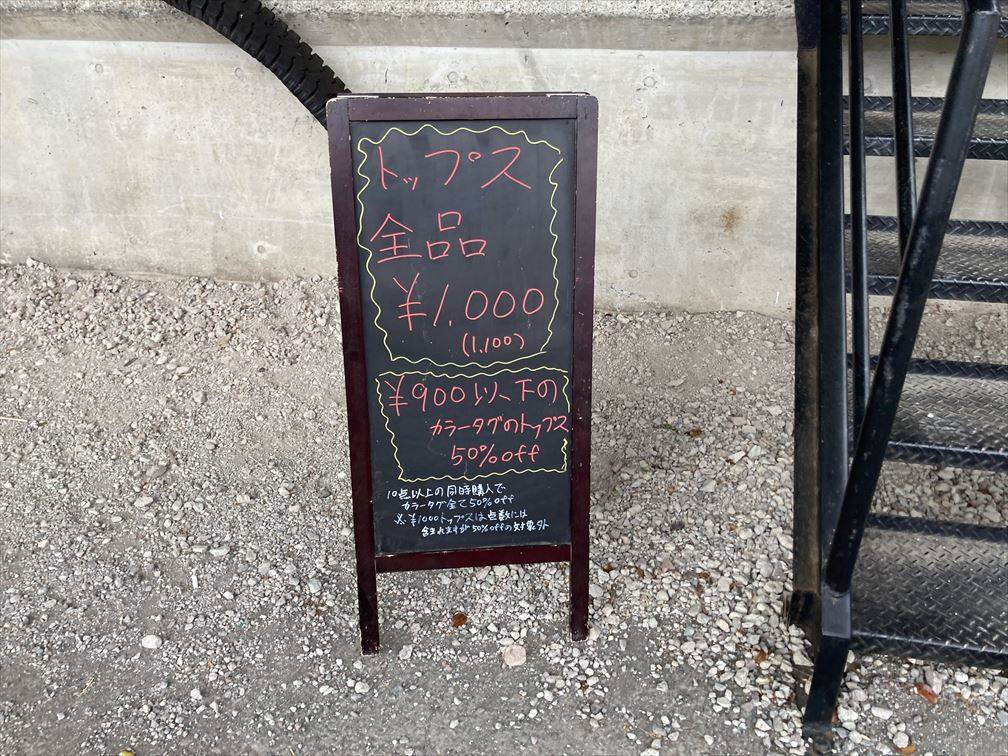 トップス
全品
¥1.000
(1,100)
¥900以下の
カラータグのトップス
50%off
10点以上の同時購入で
カラータグ全て50%off
※¥1000トップスは点数には
含まれますが50%offの対象外